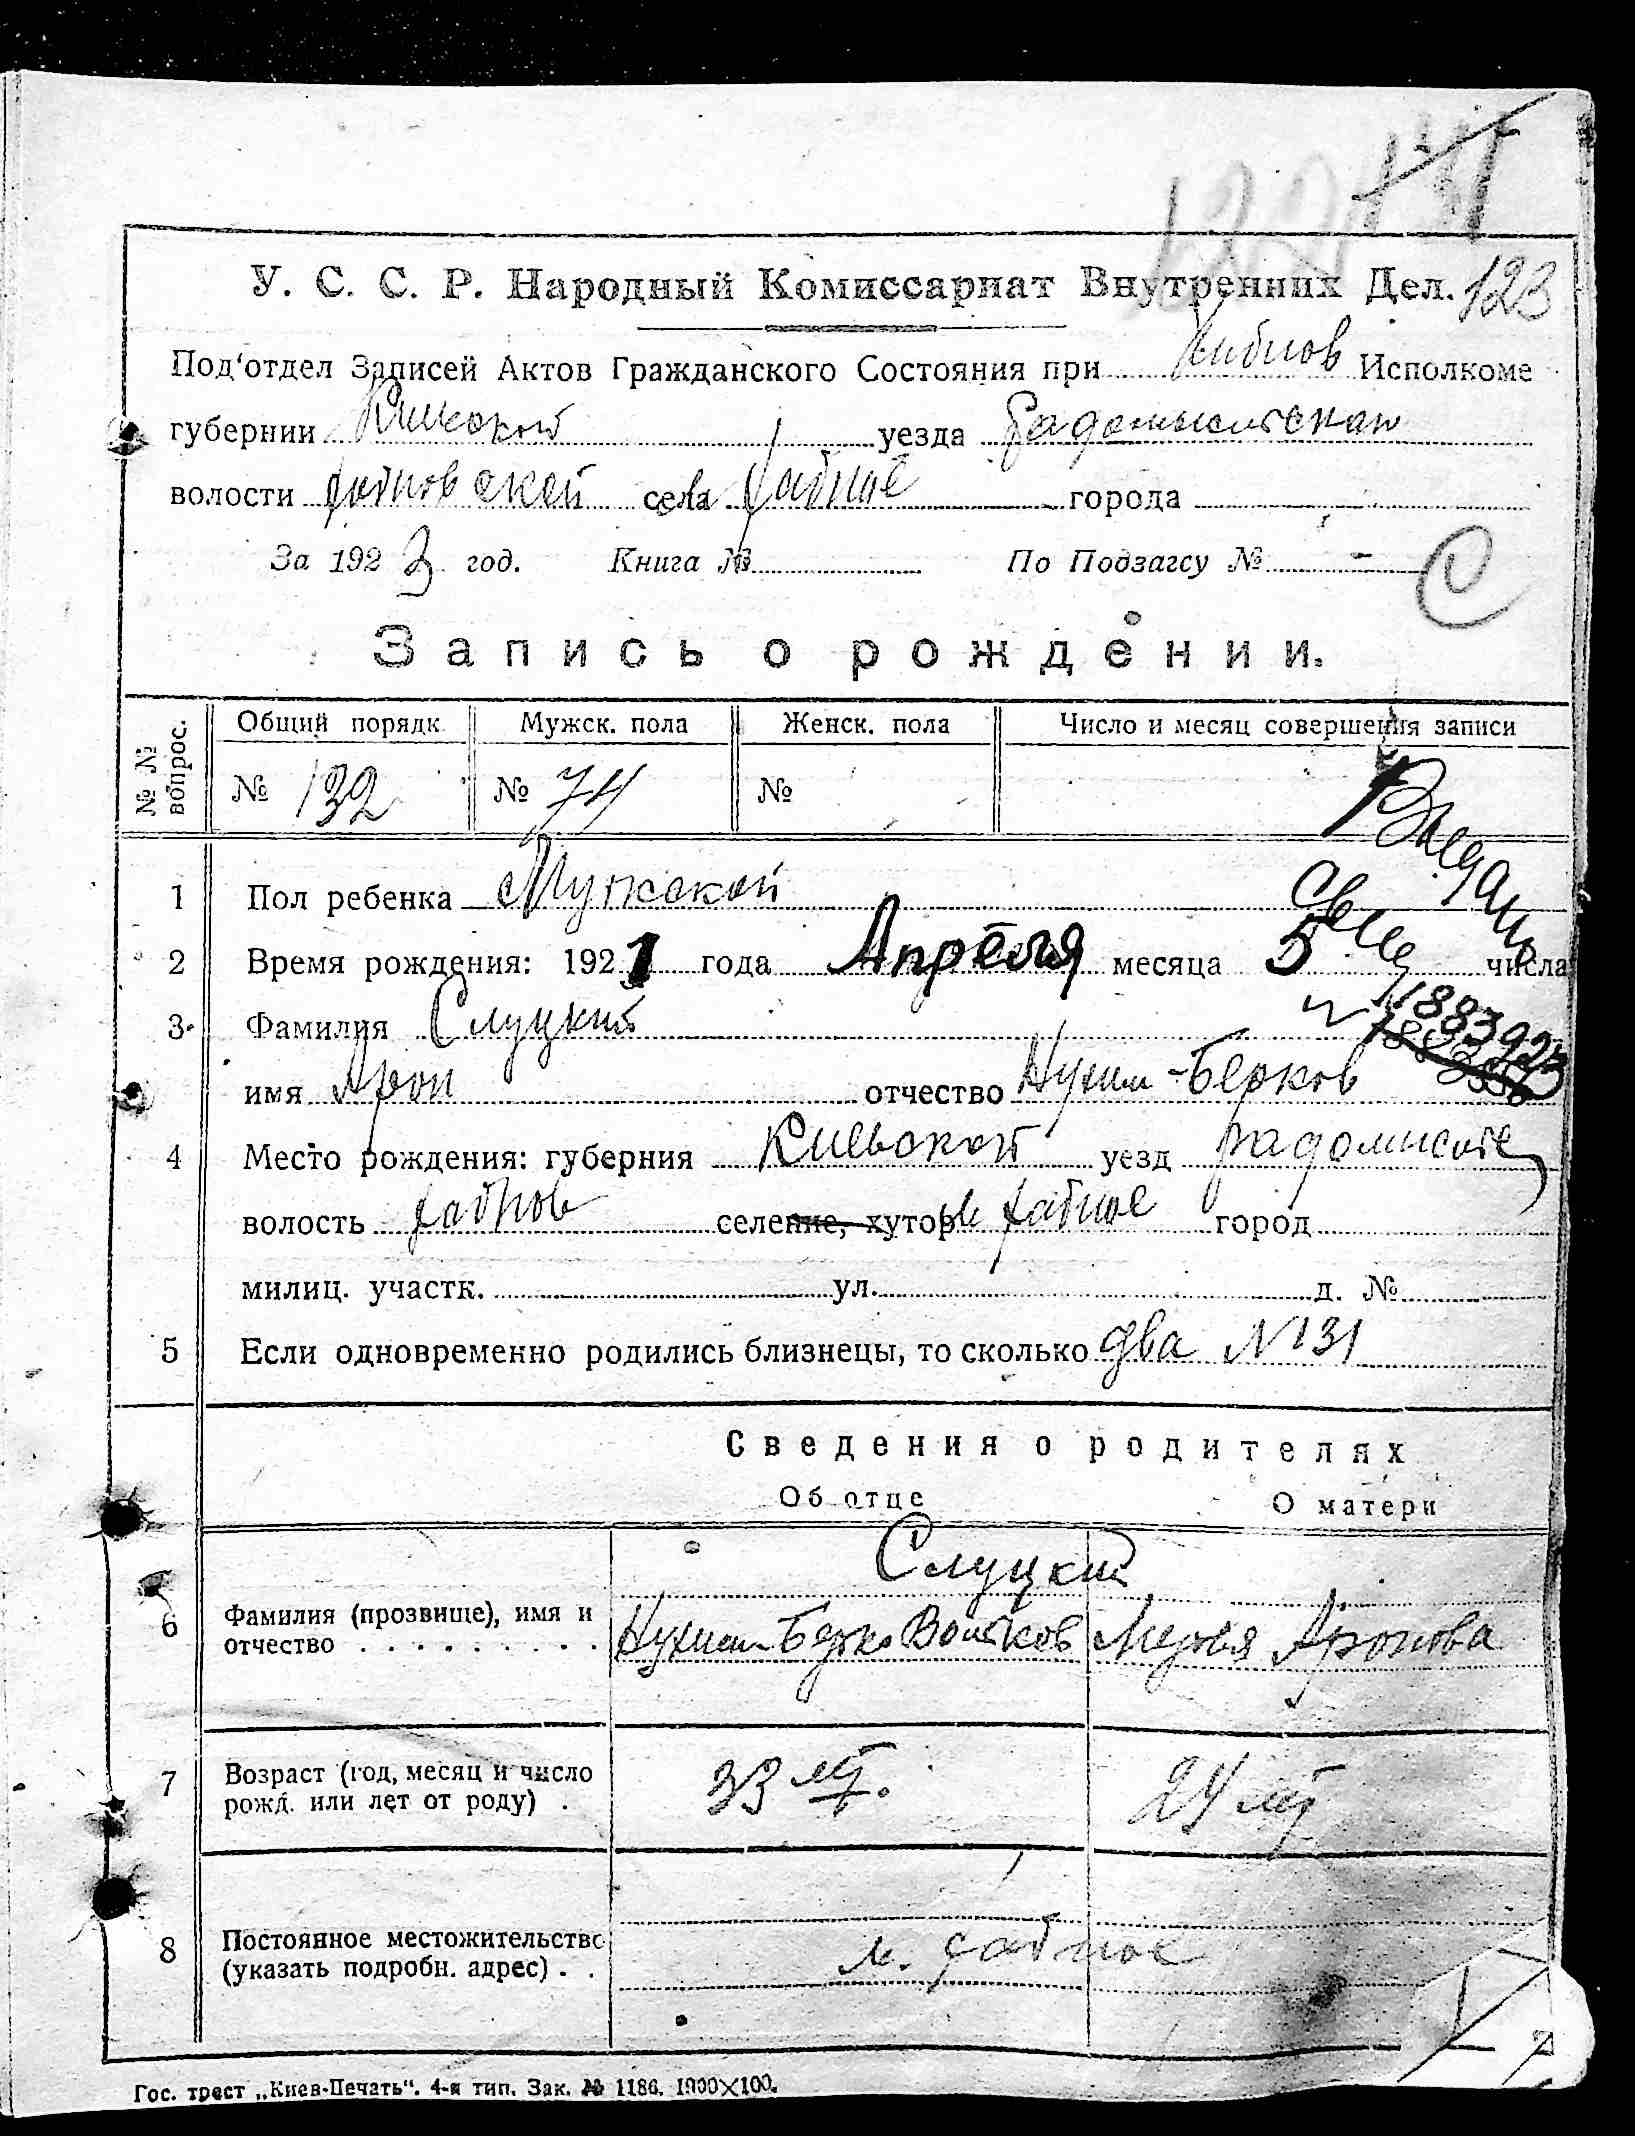 123
У. С. С. Р. Народный Комиссариат Внутренних Дел.
Под'отдел Записей Актов Гражданского Состояния при Хабнов Исполкоме
губернии Киевской уезда Радомысльскаго
волости Хабновской села Хабное города
За 1923 год. Книга № По Подзагсу № -
С
Запись о рождении.
№ № вопрос. Общий порядк. Мужск. пола Женск. пола Число и месяц совершения записи
№ 132 № 74 №
Выдано
1 Пол ребенка Мужской
свид
2 Время рождения: 1921 года Апреля месяца 5 числа
3 Фамилия Слуцкий
1883923
имя Арон отчество Нухим-Берков
4 Место рождения: губерния Киевской уезд Радомысл
волость Хабнов селение, хутор м Хабное город
милиц. участк. ул. д. №
5 Если одновременно родились близнецы, то сколько два N131
Сведения о родителях
Об отце О матери
Слуцкий
6 Фамилия (прозвище), имя и
отчество Нухим-Берко Вольков Меревя Аронова
7 Возраст (год, месяц и число
рожд. или лет от роду) 33 лет. 24 лет
8 Постоянное местожительство
(указать подробн. адрес) м. Хабное
Гос. трест „Киев-Печать“. 4-я тип. Зак. № 1186. 1000×100.